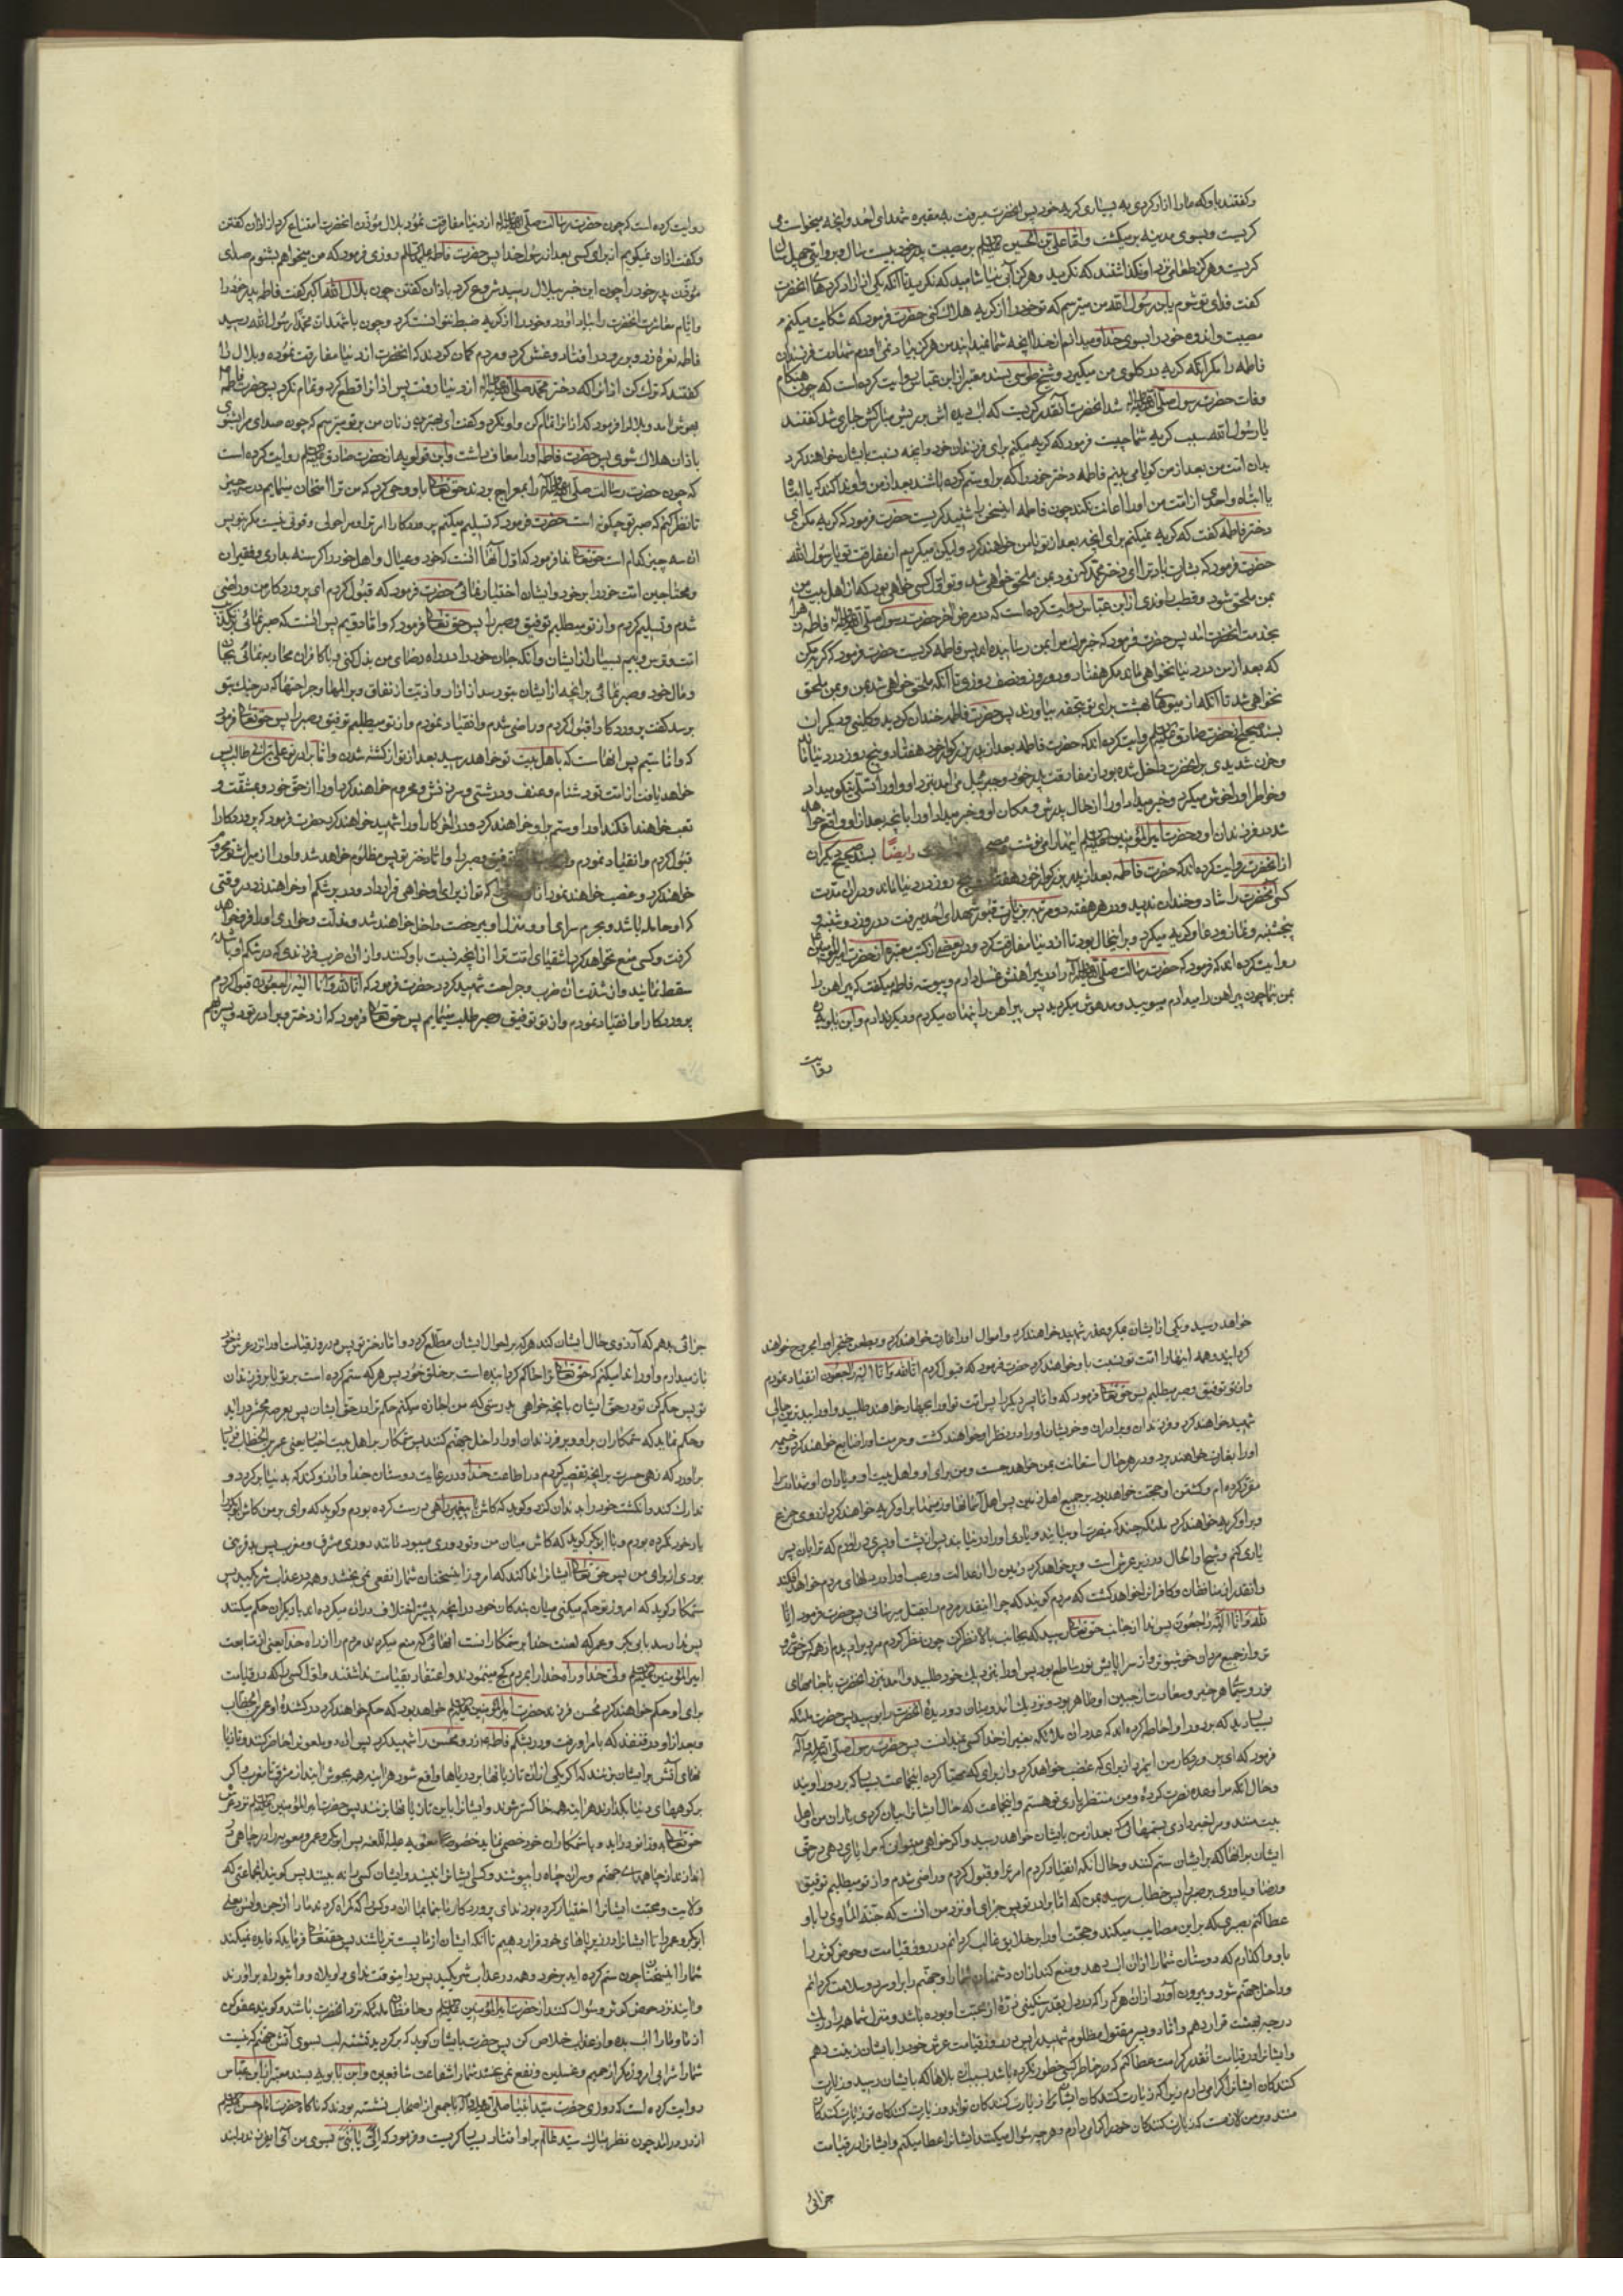 و گفتند باو که ما را ازار کردی به بسیاری کریه خود پس انحضرت میرفت به مقبره شهدای احد و انچه میخواست می
کریست و بسوی مدینه بر میکشت و اما علی بن الحسین بر مصیبت پدر خود بیست سال و بروایتی چهل سال
کریست و هرکز طعامی نزد او نکذاشتند که نکرید و هرکز آبی نیاشامید که نکرید تا آنکه یکی از ازاد کردهای انحضرت
کفت فدای تو شوم یابن رسول الله من میترسم که تو خود را از کریه هلاک کنی حضرت فرمود که شکایت میکنم
مصیبت و اندوه خود را بسوی خدا و میدانم از خدا انچه شما نمیدانید من هرکز بیاد نمی اورم شهادت فرزندان
فاطمه را مکر انکه کریه در کلوی من میکیرد و شیخ طوسی بسند معتبر از ابن عباس روایت کرده است که چون هنکام
وفات حضرت رسول صلی الله علیه و آله شد انحضرت آنقدر کریست که اب دیده اش بر ریش مبارکش جاری شد کفتند
یا رسول الله سبب کریه شما چیست فرمود که کریه میکنم برای فرزندان خود و انچه نسبت بایشان خواهند کرد
بدان امت من بعد از من کویا می بینم فاطمه دختر خود را که بر او ستم کرده باشند بعد از من و او ندا کند که یا ابتاه
یا ابتاه و احدی از امت من او را اعانت نکند چون فاطمه اینسخن را شنید کریست حضرت فرمود که کریه مکن ای
دختر فاطمه کفت که کریه نمیکنم برای انچه بعد از تو با من خواهند کرد ولیکن میکریم از مفارقت تو یا رسول الله
حضرت فرمود که بشارت باد ترا ای دختر محمد که زود بمن ملحق خواهی شد و تو اول کسی خواهی بود که از اهل بیت من
بمن ملحق شود و قطب راوندی از ابن عباس روایت کرده است که در مرض اخر حضرت رسول صلی الله علیه و آله فاطمه زهرا
بخدمت انحضرت امد پس حضرت فرمود که خبر مرک مرا بمن رسانیده اند پس فاطمه کریست حضرت فرمود که کریه مکن
که بعد از من در دنیا نخواهی ماند مکر هفتاد و دو روز و نصف روزی تا آنکه ملحق خواهی شد بمن و بمن ملحق
نخواهی شد تا انکه از میوهای بهشت برای تو تحفه بیاورند پس حضرت فاطمه خندان کردید و کلینی و دیکران
بسند صحیح از حضرت صادق روایت کرده اند که حضرت فاطمه بعد از پدر بزرکوار خود هفتاد و پنج روز در دنیا ماند
و حزن شدیدی بر انحضرت داخل شده بود از مفارقت پدر خود و جبرئیل می امد بنزد او و او را تسلی نیکو میداد
و خاطر او را خوش میکرد و خبر میداد او را از حال پدرش و مکان او و خبر میداد او را بانچه بعد از او واقع خواهد
شد بر فرزندان او و حضرت امیرالمؤمنین اینها را می نوشت وایضا بسند صحیح دیکران
از انحضرت روایت کرده اند که حضرت فاطمه بعد از پدر بزرکوار خود هفتاد و پنج روز در دنیا ماند و در ان مدت
کسی انحضرت را شاد و خندان ندید و در هر هفته دو مرتبه بزیارت قبور شهدای احد میرفت در روز دوشنبه و
پنجشنبه و نماز و دعا و کریه میکرد و بر اینحال بود تا از دنیا مفارقت کرد و در بعضی از کتب معتبره از حضرت امیرالمؤمنین
روایت کرده اند که فرمود که حضرت رسالت صلی الله علیه و آله را در پیراهنش غسل دادم و پیوسته فاطمه میکفت که پیراهن را
بمن بنما چون پیراهن را میدادم میبویید و مدهوش میکردید پس پیراهن را پنهان میکردم و دیکر ندادم و ابن بابویه
روایت
روایت کرده است که چون حضرت رسالت صلی الله علیه و آله از دنیا مفارقت نمود بلال مؤذن انحضرت امتناع کرد از اذان کفتن
و کفت اذان نمیکویم از برای کسی بعد از رسول خدا پس حضرت فاطمه علیها السلام روزی فرمود که من میخواهم بشنوم صدای
مؤذن پدر خود را چون این خبر ببلال رسید شروع کرد باذان کفتن چون بلال الله اکبر کفت فاطمه پدر خود را
و ایام معاشرت انحضرت را بیاد اورد و خود را از کریه ضبط نتوانست کرد و چون باشهدان محمدا رسول الله رسید
فاطمه نعره زد و بر رو در افتاد و غش کرد و مردم کمان کردند که انحضرت از دنیا مفارقت نموده و بلال را
کفتند که ترک کن اذان را که دختر محمد صلی الله علیه و آله از دنیا رفت پس اذان را قطع کرد و تمام نکرد پس حضرت فاطمه
بهوش امد و بلال را فرمود که اذان را تمام کن و او نکرد و کفت ای بهترین زنان من بر تو میترسم که چون صدای مرا بشنوی
باذان هلاک شوی پس حضرت فاطمه او را معاف داشت و ابن قولویه از حضرت صادق روایت کرده است
که چون حضرت رسالت صلی الله علیه و آله را بمعراج بردند حق تعالی باو وحی کرد که من ترا امتحان مینمایم در سه چیز
تا نظر کنم که صبر تو چکونه است حضرت فرمود که تسلیم میکنم پروردکارا امر ترا و مرا حولی و قوتی نیست مکر بتو پس
ان سه چیز کدام است حق تعالی ندا فرمود که اول آنها انست که خود و عیال و اهل خود را کرسنه بداری و فقیران
و محتاجین امت خود را بر خود و ایشان اختیار نمائی حضرت فرمود که قبول کردم ای پروردکار من و راضی
شدم و تسلیم کردم و از تو میطلبم توفیق و صبر را پس حق تعالی فرمود که و اما دویم پس انست که صبر نمائی بر تکذیب
امت و ترس و بیم بسیار از ایشان و آنکه جان خود را در راه رضای من بذل کنی و با کافران محاربه نمائی بجان
و مال خود و صبر نمائی بر انچه از ایشان بتو رسد از ازار و اذیت از نفاق و بر المها و جراحتها که در جنک بتو
برسد کفت پروردکارا قبول کردم و راضی شدم و انقیاد نمودم و از تو میطلبم توفیق و صبر را پس حق تعالی فرمود
که و اما سیم پس انهاست که باهل بیت تو خواهد رسید بعد از تو از کشته شدن و اما برادر تو علی بن ابی طالب پس
خواهد یافت از امت تو دشنام و عنف و درشتی و سرزنش و محروم خواهند کرد او را از حق خود و بمشقت و
تعب خواهند افکند او را و ستم بر او خواهند کرد و در اخر کار او را شهید خواهند کرد حضرت فرمود که پروردکارا
قبول کردم و انقیاد نمودم و توفیق و صبر را و اما دختر تو پس مظلوم خواهد شد و او را از میراث تو محروم
خواهند کرد و غصب خواهند نمود انرا که تو از برای او خواهی قرار داد و در بر شکم او خواهند زد در وقتی
که او حامله باشد و بحرم سرای او و منزل او بیرخصت داخل خواهند شد و مذلت و خواری او را فرو خواهد
کرفت و کسی منع نخواهد کرد اشقیای امت ترا از انچه نسبت باو کنند و از ان ضرب فرزندی که در شکم او باشد
سقط نماید و از شدت ان ضرب و جراحت شهید کردد حضرت فرمود که انا لله و انا الیه راجعون قبول کردم
پروردکارا و انقیاد نمودم و از تو توفیق و صبر طلب مینمایم پس حق تعالی فرمود که از دختر و برادر تو دو پسر بهم
خواهد رسید و یکی از ایشان بمکر و غدر شهید خواهند کرد و اموال او را غارت خواهند کرد و بطعن خنجر او را مجروح خواهند
کردانید و همه اینها را امت تو نسبت باو خواهند کرد حضرت فرمود که قبول کردم انا لله و انا الیه راجعون انقیاد نمودم
و از تو توفیق و صبر میطلبم پس حق تعالی فرمود که و اما پسر دیکر را پس امت تو او را بجهاد خواهند طلبید و او را بدترین حالی
شهید خواهند کرد و فرزندان و برادران و خویشان او را در نظر او خواهند کشت و حرمت او را ضایع خواهند کرد و خیمه
او را بغارت خواهند برد و در هر حال استعانت بمن خواهد جست و من برای او و اهل بیت او و یاران او شهادت را
مقرر کرده ام و کشتن او حجت خواهد بود بر جمیع اهل زمین پس اهل آسمانها و زمینها بر او کریه خواهند کرد از روی جزع
و بر او کریه خواهند کرد ملئکه چند که بنصرت او بیایند و یاری او را در نیابند پس از پشت او پسری در اورم که ترا بان پسر
یاری کنم و شبح او الحال در زیر عرش است و پر خواهد کرد زمین را از عدالت و رعب او در دلهای مردم خواهد افکند
و انقدر از منافقان و کافران خواهد کشت که مردم کویند که چرا اینقدر مردم را بقتل میرسانی پس حضرت فرمود انا
لله و انا الیه راجعون پس ندا از جانب حق تعالی رسید که بجانب بالا نظر کن چون نظر کردم مردیرا دیدم از همه کس خوشرو
تر و از جمیع مردم خوشبوتر و از سراپایش نور ساطع بود پس او را بنزدیک خود طلبید و امد بنزد انحضرت با جامهای
نور و سیمای هر خیر و سعادت از جبین او ظاهر بود و نزدیک امد و میان دو دیدهٔ انحضرت را بوسید پس حضرت ملئکه
بسیار دید که بر دور او احاطه کرده اند که عدد ان ملائکه بغیر از خدا کسی نمیدانست پس حضرت رسول صلی الله علیه و آله
فرمود که ای پروردکار من این مرد از برای که غضب خواهد کرد و از برای که مهیا کرده اینجماعت بسیار که بر دور اویند
و حال انکه مرا وعده نصرت کردهٔ و من منتظر یاری تو هستم و اینجماعت که حال ایشان را بیان کردی یاران من و اهل
بیت منند و مرا خبر دادی بستمهائی که بعد از من بایشان خواهد رسید و اکر خواهی میتوانی که مرا یاری دهی در حق
ایشان بر انها که بر ایشان ستم کنند و حال آنکه انقیاد کردم امر ترا و قبول کردم و راضی شدم و از تو میطلبم توفیق
و رضا و یاوری بر صبر را پس خطاب رسید بمن که اما برادر تو پس جزای او نزد من انست که جنة المأوی را باو
عطا کنم بصبری که بر این مصایب میکند و حجت او را بر خلایق غالب کردانم در روز قیامت و حوض کوثر را
باو واکذارم که دوستان شما را از ان اب دهد و منع کند از ان دشمنان شما را و جهنم را بر او سرد و سلامت کردانم
و داخل جهنم شود و بیرون آورد از ان هرکس را که در دل بقدر سنکینی ذرهٔ از محبت او بوده باشد و منزل شما همه را در یک
درجه بهشت قرار دهم و اما دو پسر مقتول مظلوم شهید را پس در روز قیامت عرش خود را بایشان زینت دهم
و ایشان را در قیامت انقدر کرامت عطا کنم که در خاطر کسی خطور نکرده باشد بسبب ان بلاها که بایشان رسید و زیارت
کنندکان ایشان را کرامی دارم زیرا که زیارت کنندکان ایشان زیارت کنندکان تواند و زیارت کنندکان تو زیارت کنندکان
منند و بر من لازمست که زیارت کنندکان خود را کرامی دارم و هر چه سوال میکنند ایشان را عطا میکنم و ایشان را در قیامت
جزائی
جزائی بدهم که آرزوی حال ایشان کند هرکه بر احوال ایشان مطلع کردد و اما دختر تو پس در روز قیامت او را نزد عرش خود
باز میدارم و او را ندا میکنم که حق تعالی ترا حاکم کردانیده است بر خلق خود پس هرکه ستم کرده است بر تو یا بر فرزندان
تو پس حکم کن تو در حق ایشان بانچه خواهی بدرستی که من اجازه میکنم حکم ترا در حق ایشان پس بعرصه محشر در اید
و حکم نماید که ستمکاران بر او و بر فرزندان او را داخل جهنم کنند پس ستمکار بر اهل بیت اختیار یعنی عمر بن الخطاب فریاد
براورد که زهی حسرت بر انچه تقصیر کردم در اطاعت خدا و در رعایت دوستان خدا و ارزو کند که بدنیا برکردد و
تدارک کند و انکشت خود را بدندان کزد و کوید که کاش با پیغمبر راهی درست کرده بودم و کوید که وای بر من کاش ابوبکر را
یار خود نکرده بودم و با ابوبکر کوید که کاش میان من و تو دوری میبود مانند دوری مشرق و مغرب پس بد قرینی
بودی از برای من پس حق تعالی ایشان را ندا کند که امروز اینسخنان شما را نفعی نمی بخشد و همه در عذاب شریکید پس
ستمکار کوید که امروز تو حکم میکنی میان بندکان خود در انچه بیشتر اختلاف در ان میکرده اند یا دیکران حکم میکنند
پس ندا رسد بابی بکر و عمر که لعنت خدا بر ستمکار انست انهائی که منع میکردند مردم را از راه خدا یعنی از متابعت
امیرالمؤمنین ولی خدا و راه خدا را بمردم کج مینمودند و اعتقاد بقیامت نداشتند و اول کسی را که در قیامت
برای او حکم خواهند کرد محسن فرزند حضرت امیرالمؤمنین خواهد بود که حکم خواهند کرد در کشندهٔ او عمر بن الخطاب
و بعد از او در قنفذ که بامر او رفت و در بشکم فاطمه زد و محسن را شهید کرد پس ان دو ملعون را حاضر کنند و تازیا
نهای آتش بر ایشان بزنند که اکر یکی از ان تازیانها بر دریاها واقع شود هر اینه همه بجوش ایند از مشرق تا مغرب و اکر
بر کوههای دنیا بکذارند هر اینه همه خاکستر شوند و ایشان را باین تازیانها بزنند پس حضرت امیرالمؤمنین نزد عرش
حق تعالی بدو زانو در اید و با ستمکاران خود خصمی نماید خصوصا معویه علیه اللعنه پس ابوبکر و عمر و معویه را در چاهی
اندازند از چاههای جهنم و سر ان چاه را بپوشند و کسی ایشان را نبیند و ایشان کسی را نه بینند پس کویند انجماعتی که
ولایت و محبت ایشان را اختیار کرده بودند ای پروردکار ما بنما بما ان دو کس را که کمراه کردند ما را از جن و انس یعنی
ابوبکر و عمر را تا ایشان را در زیر پاهای خود قرار دهیم تا آنکه ایشان از ما پست تر باشند پس حق تعالی فرماید که فایده نمیکند
شما را اینسخنان چون ستم کرده اید بر خود و همه در عذاب شریکید پس در اینوقت ندای واویلاه و واثبوراه براورند
و بایند نزد حوض کوثر و سوال کنند از حضرت امیرالمؤمنین و حافظان ملئکه نزد انحضرت باشند و کویند عفو کن
از ما و ما را اب بده و از عذاب خلاص کن پس حضرت بایشان کوید که برکردید تشنه لب بسوی آتش جهنم که نیست
شما را شرابی امروز مکر از حمیم و غسلین و نفع نمی بخشد شما را شفاعت شافعین و ابن بابویه بسند معتبر از ابن عباس
روایت کرده است که روزی حضرت سید انبیا صلی الله علیه و آله با جمعی از اصحاب نشسته بودند که ناکاه حضرت امام حسن
از در در امد چون نظر مبارک سید عالم بر او افتاد بسیار کریست و فرمود که الی یا بنی بسوی من آی ای فرزند دلبند